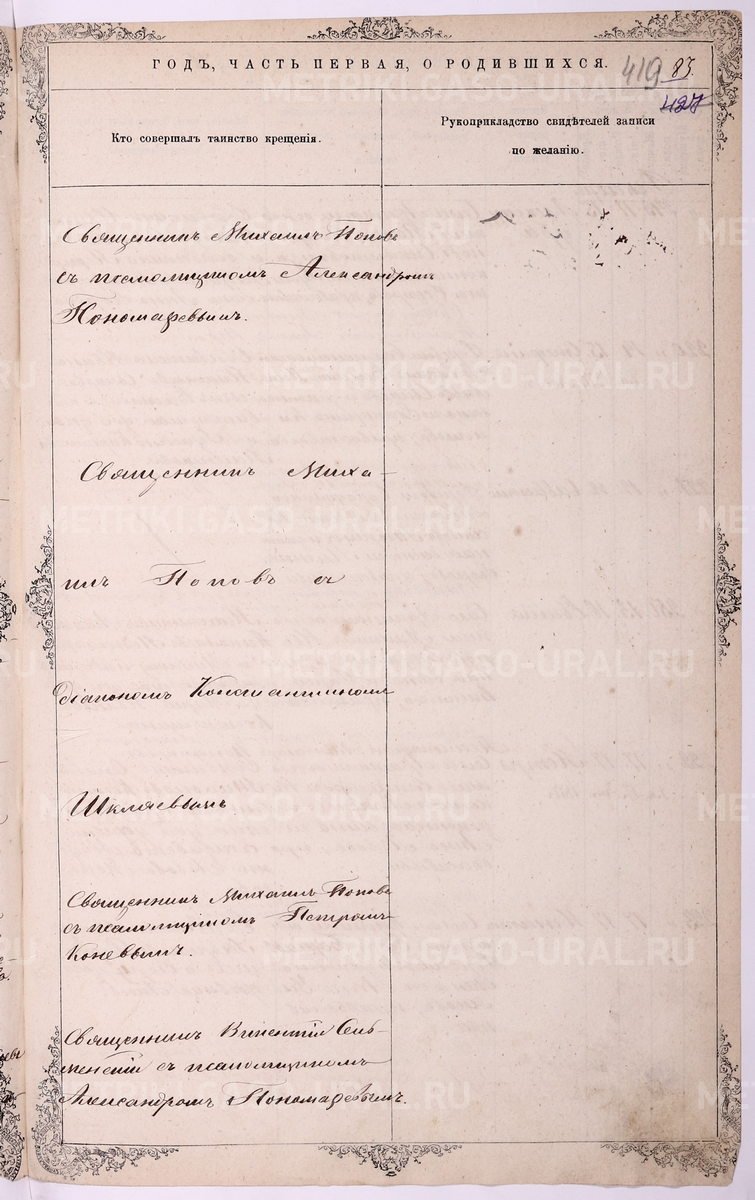 ГОДЪ, ЧАСТЬ ПЕРВАЯ, О РОДИВШИХСЯ.
419 83.
427
Кто совершалъ таинство крещенія.
Рукоприкладство свидѣтелей записи
по желанію.
Священникъ Михаилъ Поповъ
съ псаломщикомъ Александромъ
Пономаревымъ.
Священникъ Миха-
илъ Поповъ съ
діакономъ Константиномъ
Шкляевымъ
Священникъ Михаилъ Поповъ
съ псаломщикомъ Петромъ
Коневымъ.
Священникъ Викентій Сель-
менскій съ псаломщикомъ
Александромъ Пономаревымъ.
METRIKI.GASO-URAL.RU